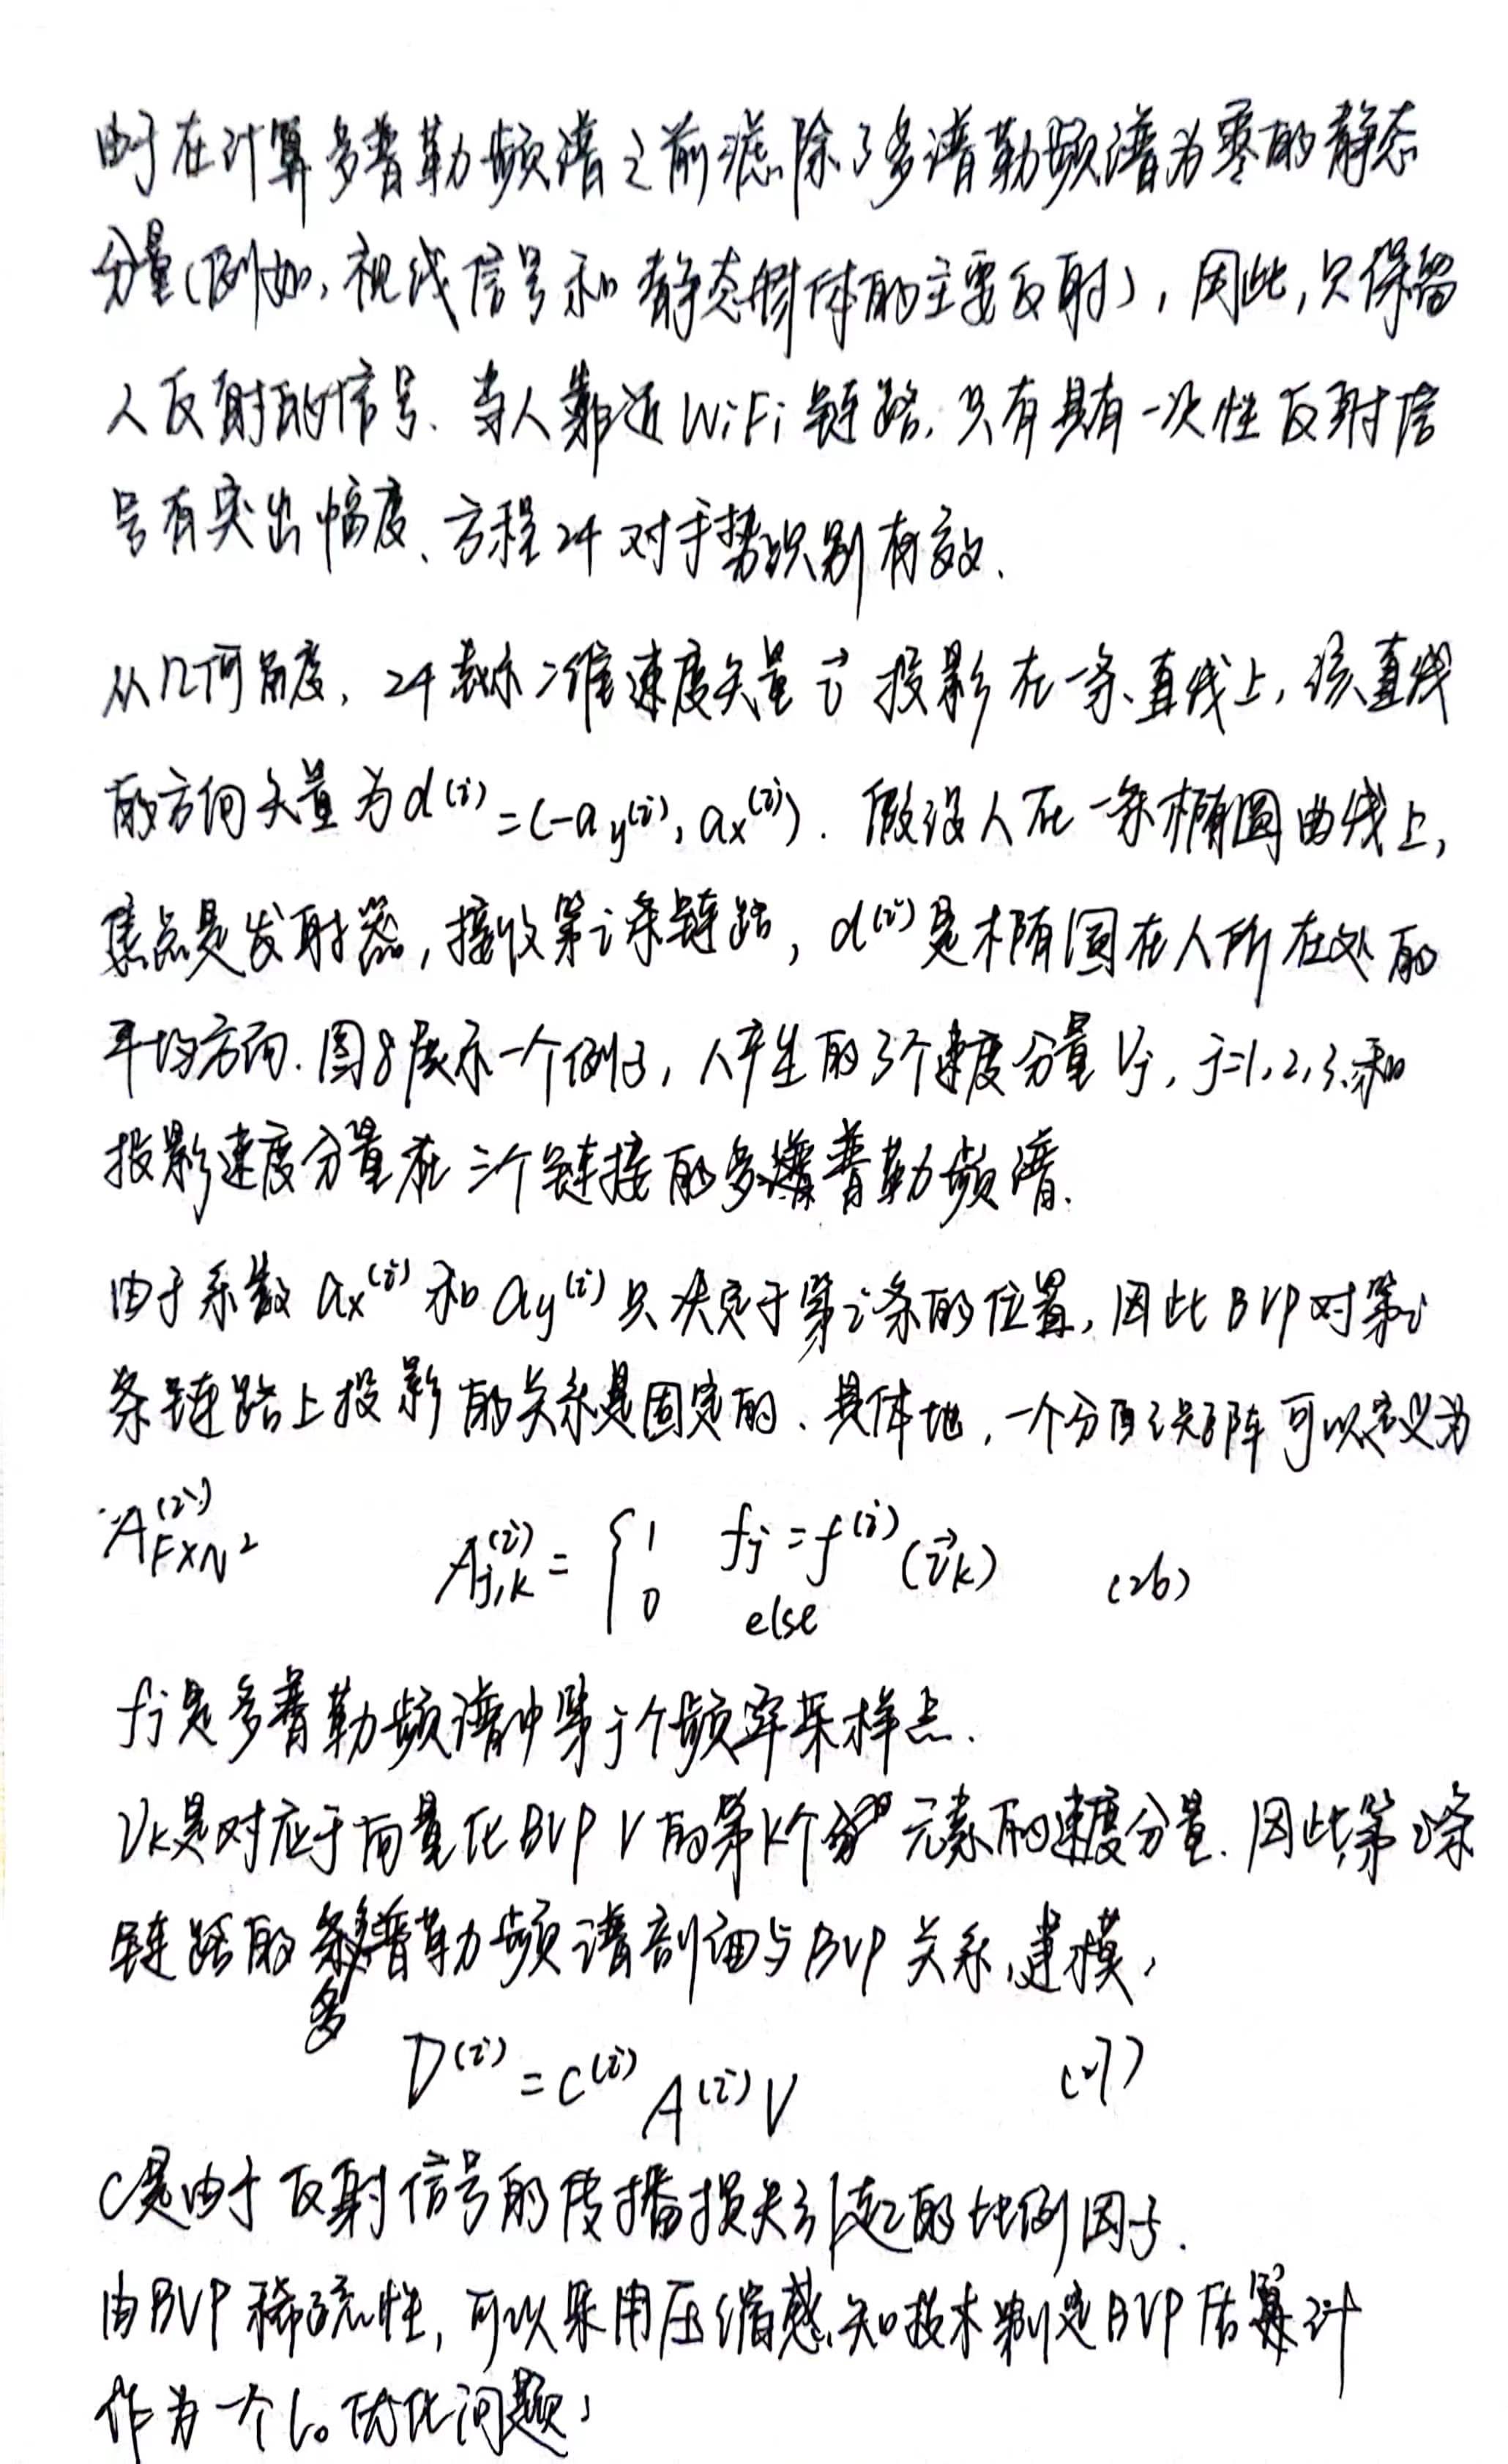 由于在计算多普勒频谱之前滤除了多谱勒频谱为零的静态
分量(例如,视线信号和静态物体的主要反射),因此,只保留
人反射的信号、当人靠近WiFi链路,只有具有一次性反射信
号有突出幅度、方程24对手势识别有效.
从几何角度,24表示二维速度矢量v⃗投影在一条直线上,该直线
的方向矢量为d⁽ⁱ⁾=(-a_y⁽ⁱ⁾,a_x⁽ⁱ⁾). 假设人在一条椭圆曲线上,
焦点是发射器,接收第i条链路,d⁽ⁱ⁾是椭圆在人所在处的
平均方向.图8展示一个例子,人产生的3个速度分量Vj,j=1,2,3,和
投影速度分量在三个链接的多普勒频谱.
由于系数a_x⁽ⁱ⁾和a_y⁽ⁱ⁾只决定于第i条的位置,因此BVP对第i
条链路上投影的关系是固定的、具体地,一个分配矩阵可以定义为
A_{F×N²}^{(i)} A_{j,k}^{(i)} = { 1 fj=f⁽ⁱ⁾(v⃗k) (26)
0 else
fj是多普勒频谱中第j个频率采样点.
Vk是对应于向量化BVP V的第k个元素的速度分量.因此,第i条
链路的多普勒频谱剖面与BVP关系,建模,
D⁽ⁱ⁾=C⁽ⁱ⁾A⁽ⁱ⁾V (27)
C是由于反射信号的传播损失引起的比例因子.
由BVP稀疏性,可以采用压缩感知技术制定BVP估算计
作为一个l₀优化问题: